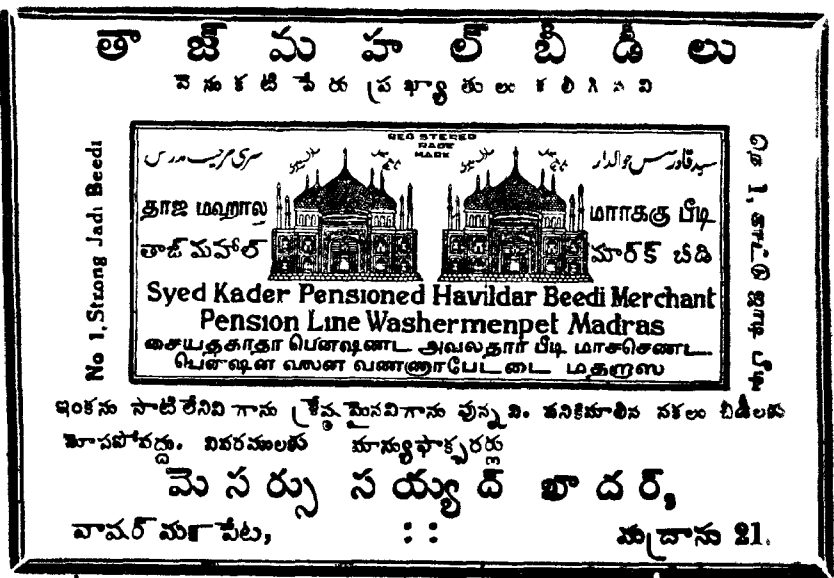 తాజ్ మహల్ బీడీలు
వెనుకటి పేరు ప్రఖ్యాతులు కలిగినవి
No 1, Strong Jadi Beedi
REGISTERED
TRADE
MARK
தாஜ மஹால
மாாககு பீடி
తాజ్ మహాల్
మార్క్ బీడి
Syed Kader Pensioned Havildar Beedi Merchant
Pension Line Washermenpet Madras
சையதகாதா பென்ஷண்ட அவலதார் பீடி மாசசெண்ட
பென்ஷன் லைன வண்ணாபேட்டை மதறாஸ
ఇంకను సాటిలేనివిగాను శ్రేష్ఠమైనవిగాను వున్నవి. పనికిమాలిన నకలు బీడీలకు
మోసపోవద్దు. వివరములకు మాన్యుఫాక్చరర్లు
మెసర్సు సయ్యద్ ఖాదర్,
వాషర్ మన్ పేట, : : మద్రాసు 21.